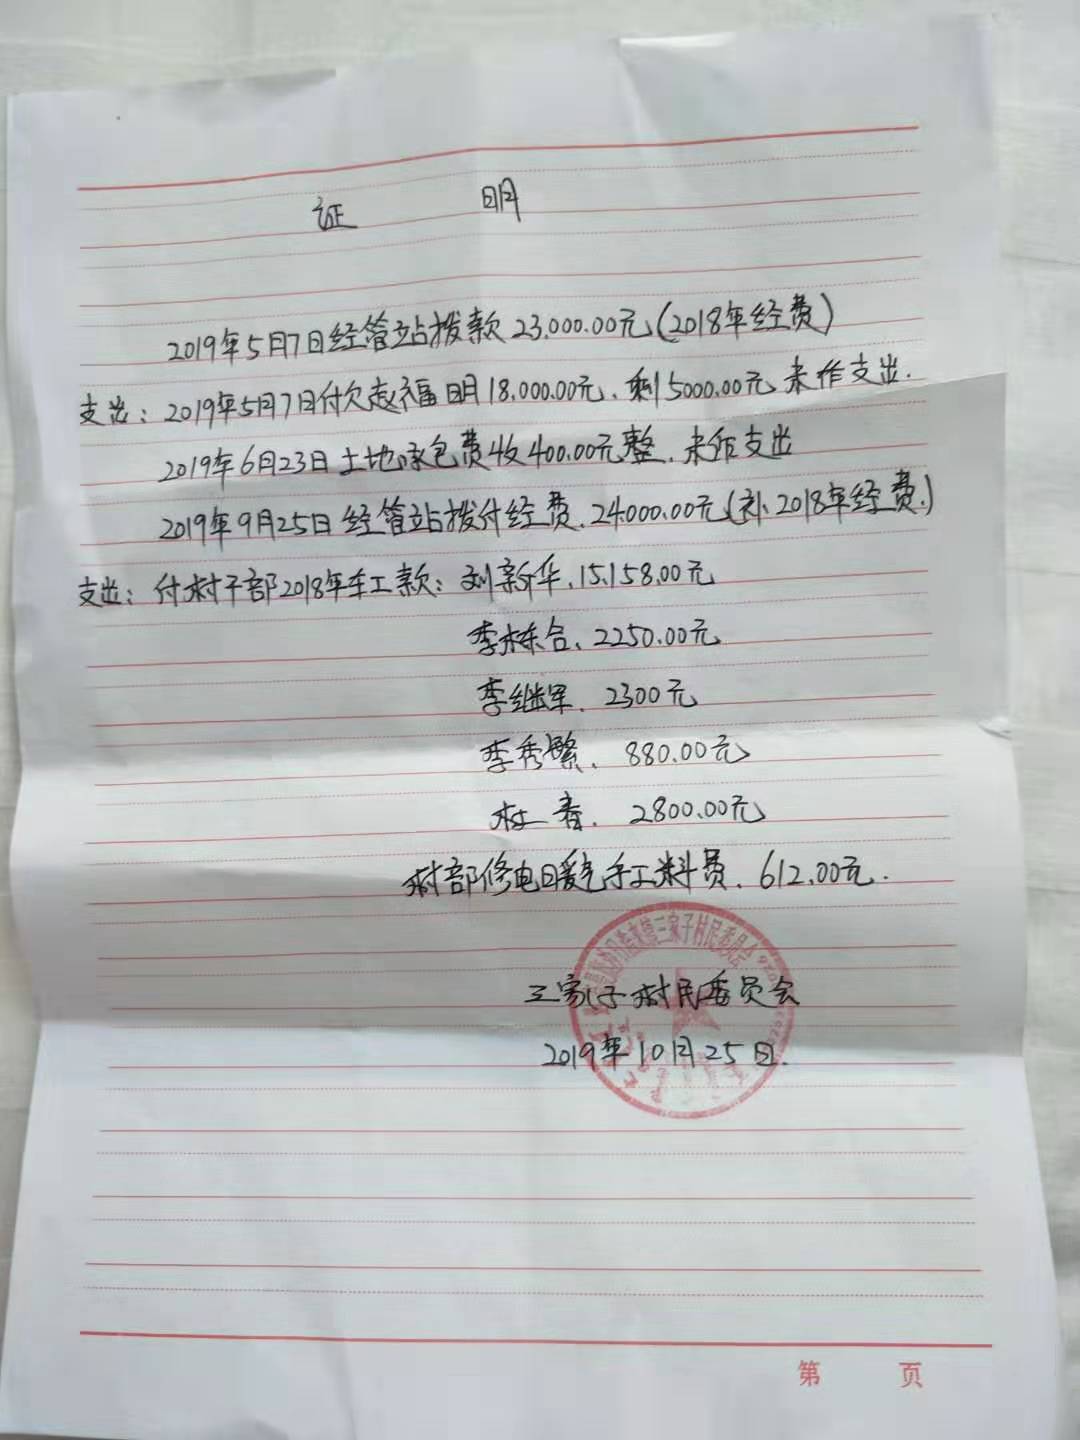 证 明
2019年5月7日经管站拨款23.000.00元(2018年经费)
支出：2019年5月7日付欠赵福明18.000.00元、剩5000.00元未作支出.
2019年6月23日土地承包费收400.00元整、未作支出
2019年9月25日经管站拨付经费、24000.00元(补2018年经费.)
支出：付村干部2018年车工款：刘新华、15.158.00元
李栋合、2250.00元
李继军、2300元
李秀繁、880.00元
杜春、2800.00元
村部修电暖气手工料费、612.00元.
三家子村民委员会
三家子村民委员会
2019年10月25日.
第 页